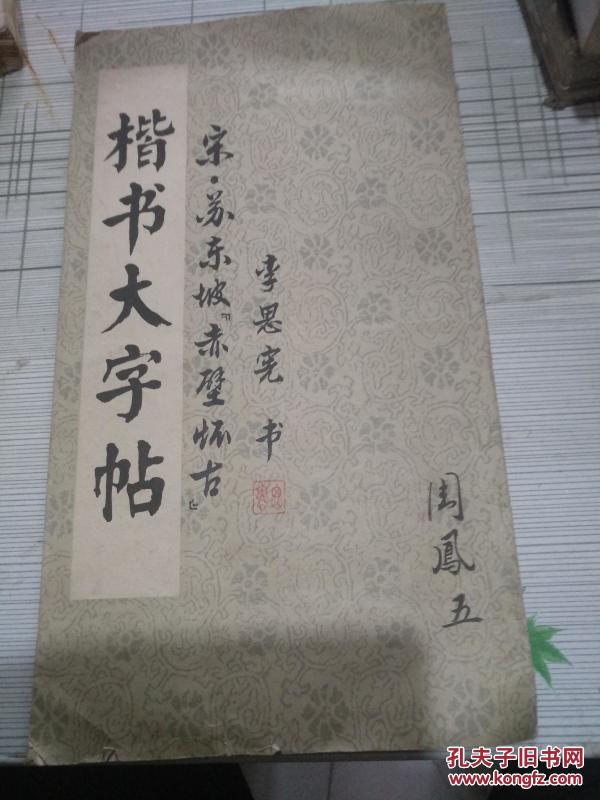 楷书大字帖
宋·苏东坡『赤壁怀古』
李思宪 书
周凤五
孔夫子旧书网
www.kongfz.com